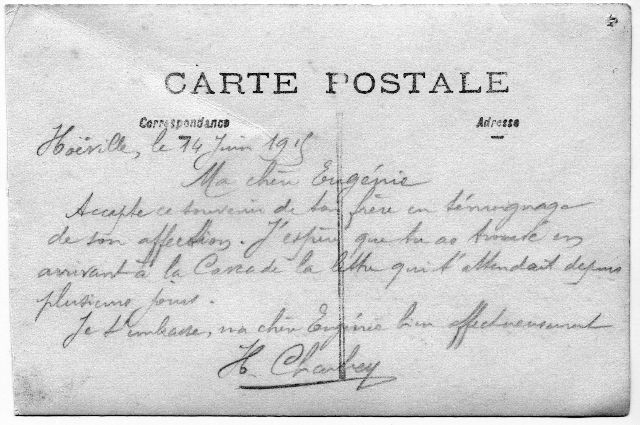 CARTE POSTALE
Correspondance
Adresse
Hoéville, le 14 Juin 1915
Ma chère Eugénie
Accepte ce souvenir de ton frère en témoignage
de son affection. J'espère que tu as trouvé en
arrivant à la Cascade la lettre qui t'attendait depuis
plusieurs jours.
Je t'embrasse, ma chère Eugénie bien affectueusement
H.